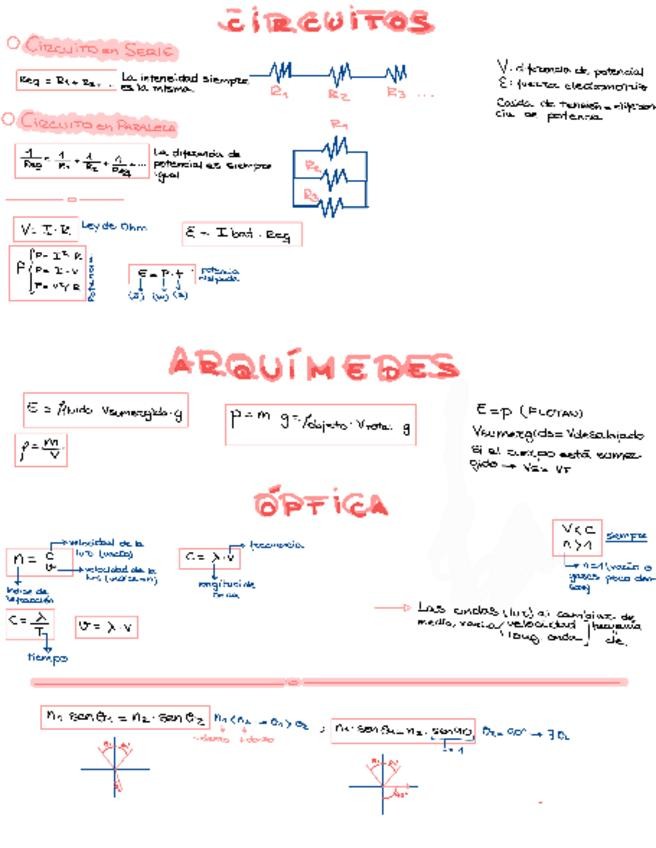 CIRCUITOS
CIRCUITO en SERIE
Req = R1 + R2 ...
La intensidad siempre
es la misma
R1 R2 R3 ...
V: diferencia de potencial
ε: fuerza electromotriz
Caída de tensión = diferen-
cia de potencia
CIRCUITO en PARALELO
1/Req = 1/R1 + 1/R2 + 1/Req + ...
La diferencia de
potencial es siempre
igual
R1
R2
R3
V = I · R
Ley de Ohm
ε = I bat · Req
P
P = I² · R
P = I · V
P = V²/R
Potencia
E = P · t
potencia
disipada
(J) (W) (s)
ARQUÍMEDES
E = ρfluido Vsumergido · g
ρ = m/V
p = m g = ρobjeto · Vtotal g
E = p (FLOTAN)
Vsumergido = Vdesalojado
Si el cuerpo está sumer-
gido → Vs = VT
ÓPTICA
n = c/v
velocidad de la
luz (vacío)
velocidad de la
índice de
refracción
c = λ · ν
frecuencia
longitud de
onda
V < C
n > 1
siempre
n=1 (vacío o
gases poco den-
sos)
c = λ/T
tiempo
v = λ · ν
Las ondas (luz) al cambiar de
medio, varía velocidad frecuencia
long. onda cte.
n1 · sen θ1 = n2 · sen θ2
n1 < n2 → θ1 > θ2
-denso +denso
; n1 · sen θ1 = n2 · sen 90
= 1
θ2 = 90° → ∃ θL
90°